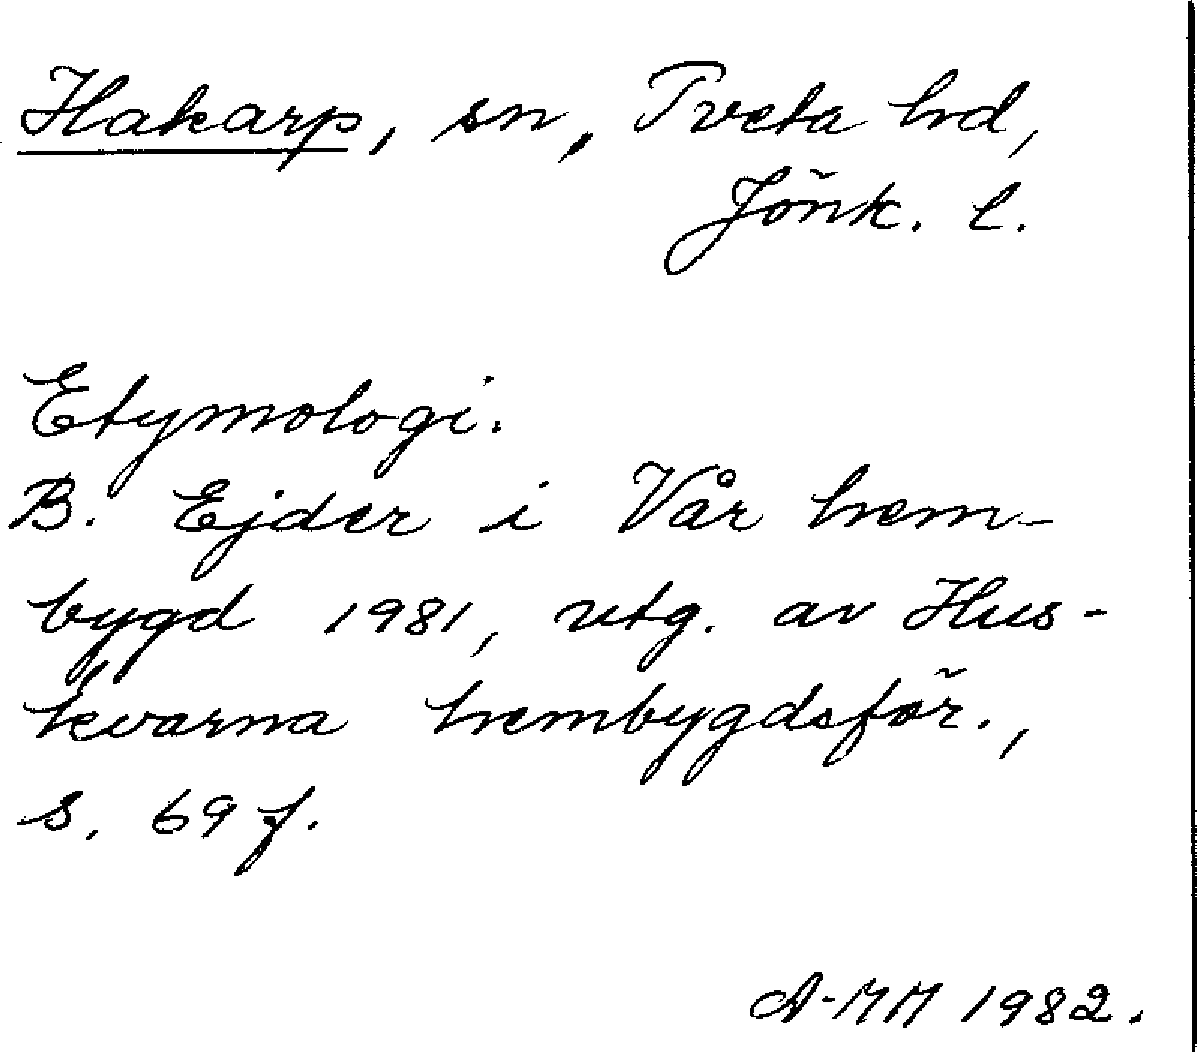 Hakarp, sn, Tveta hd,
Jönk. l.
Etymologi.
B. Ejder i Vår hem-
bygd 1981, utg. av Hus-
kvarna hembygdsför.,
s. 69 f.
A-MM 1982.